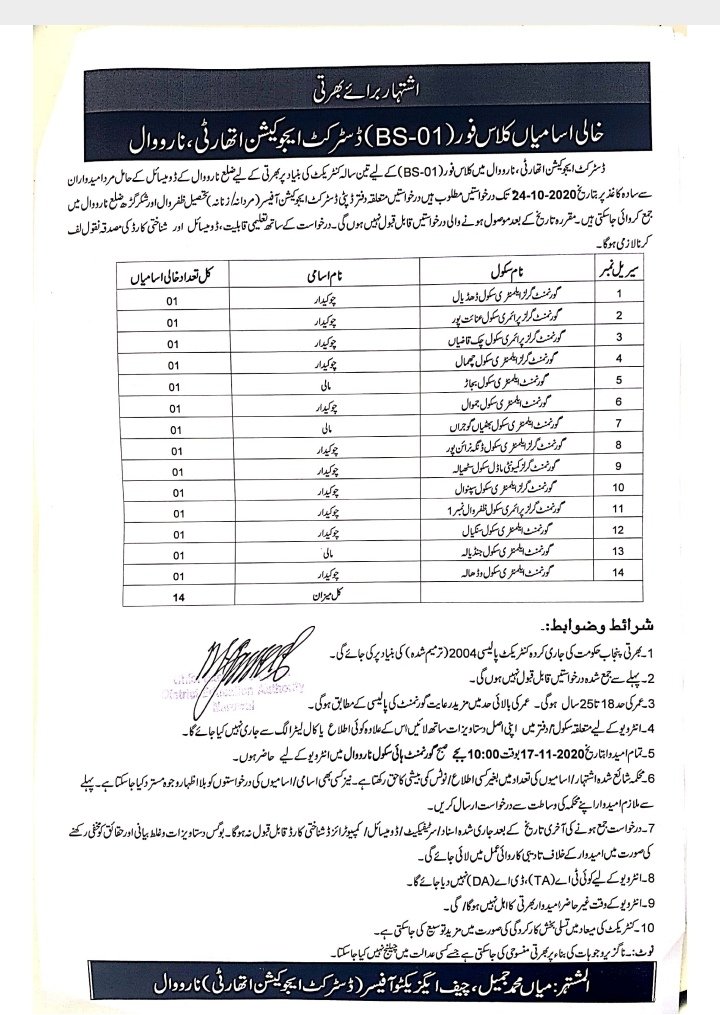 اشتہار برائے بھرتی
خالی اسامیاں کلاس فور (BS-01) ڈسٹرکٹ ایجوکیشن اتھارٹی، نارووال
ڈسٹرکٹ ایجوکیشن اتھارٹی، نارووال میں کلاس فور (BS-01) کے لیے تین سالہ کنٹریکٹ کی بنیاد پر بھرتی کے لیے ضلع نارووال کے ڈومیسائل کے حامل مرد امیدواران
سے سادہ کاغذ پر بتاریخ 24-10-2020 تک درخواستیں مطلوب ہیں درخواستیں متعلقہ دفتر ڈپٹی ڈسٹرکٹ ایجوکیشن آفیسر (مردانہ/زنانہ) تحصیل ظفروال اور شکرگڑھ ضلع نارووال میں
جمع کروائی جاسکتی ہیں۔ مقررہ تاریخ کے بعد موصول ہونے والی درخواستیں قابل قبول نہیں ہوں گی۔ درخواست کے ساتھ تعلیمی قابلیت، ڈومیسائل اور شناختی کارڈ کی مصدقہ نقول لف
کرنا لازمی ہوگا۔
سیریل نمبر نام سکول نام اسامی کل تعداد خالی اسامیاں
1 گورنمنٹ گرلز ایلیمنٹری سکول ڈھڈیال چوکیدار 01
2 گورنمنٹ گرلز پرائمری سکول عنائت پور چوکیدار 01
3 گورنمنٹ گرلز پرائمری سکول چک قاضیاں چوکیدار 01
4 گورنمنٹ گرلز ایلیمنٹری سکول چھمال چوکیدار 01
5 گورنمنٹ ایلیمنٹری سکول بھاڑ مالی 01
6 گورنمنٹ ایلیمنٹری سکول جموال چوکیدار 01
7 گورنمنٹ ایلیمنٹری سکول بھٹیاں گوجراں مالی 01
8 گورنمنٹ گرلز ایلیمنٹری سکول ڈنگہ نرائن پور چوکیدار 01
9 گورنمنٹ گرلز کمیونٹی ماڈل سکول سٹھیالہ چوکیدار 01
10 گورنمنٹ گرلز ایلیمنٹری سکول سپنوال چوکیدار 01
11 گورنمنٹ گرلز پرائمری سکول ظفروال نمبر 1 چوکیدار 01
12 گورنمنٹ ایلیمنٹری سکول سنکیال چوکیدار 01
13 گورنمنٹ ایلیمنٹری سکول جنڈیالہ مالی 01
14 گورنمنٹ ایلیمنٹری سکول وڈھالہ چوکیدار 01
کل میزان 14
شرائط وضوابط:۔
1۔ بھرتی پنجاب حکومت کی جاری کردہ کنٹریکٹ پالیسی 2004 (ترمیم شدہ) کی بنیاد پر کی جائے گی۔
2۔ پہلے سے جمع شدہ درخواستیں قابل قبول نہیں ہوں گی۔
District Education Authority
Narowal
3۔ عمر کی حد 18 تا 25 سال ہوگی۔ عمر کی بالائی حد میں مزید رعایت گورنمنٹ کی پالیسی کے مطابق ہوگی۔
4۔ انٹرویو کے لیے متعلقہ سکول/دفتر میں اپنی اصل دستاویزات ساتھ لائیں اس کے علاوہ کوئی اطلاع یا کال لیٹر الگ سے جاری نہیں کیا جائے گا۔
5۔ تمام امیدوار بتاریخ 17-11-2020 بوقت 10:00 بجے صبح گورنمنٹ ہائی سکول نارووال میں انٹرویو کے لیے حاضر ہوں۔
6۔ محکمہ شائع شدہ اشتہار/اسامیوں کی تعداد میں بغیر کسی اطلاع/نوٹس کمی بیشی کا حق رکھتا ہے۔ نیز کسی بھی اسامی/اسامیوں کی درخواستوں کو بلا اظہار وجوہ مسترد کیا جاسکتا ہے۔ پہلے
سے ملازم امیدوار اپنے محکمہ کی وساطت سے درخواست ارسال کریں۔
7۔ درخواست جمع ہونے کی آخری تاریخ کے بعد جاری شدہ اسناد/سرٹیفکیٹ/ڈومیسائل/کمپیوٹرائزڈ شناختی کارڈ قابل قبول نہ ہوگا۔ بوگس دستاویزات و غلط بیانی اور حقائق کو مخفی رکھنے
کی صورت میں امیدوار کے خلاف تادیبی کاروائی عمل میں لائی جائے گی۔
8۔ انٹرویو کے لیے کوئی ٹی اے (TA)، ڈی اے (DA) نہیں دیا جائے گا۔
9۔ انٹرویو کے وقت غیر حاضر امیدوار بھرتی کا اہل نہیں ہوگا/گی۔
10۔ کنٹریکٹ کی میعاد میں تسلی بخش کارکردگی کی صورت میں مزید توسیع کی جاسکتی ہے۔
نوٹ:۔ ناگزیر وجوہات کی بناء پر بھرتی منسوخ کی جاسکتی ہے جسے کسی عدالت میں چیلنج نہیں کیا جاسکتا۔
المشتہر: میاں محمد جمیل، چیف ایگزیکٹو آفیسر (ڈسٹرکٹ ایجوکیشن اتھارٹی) نارووال